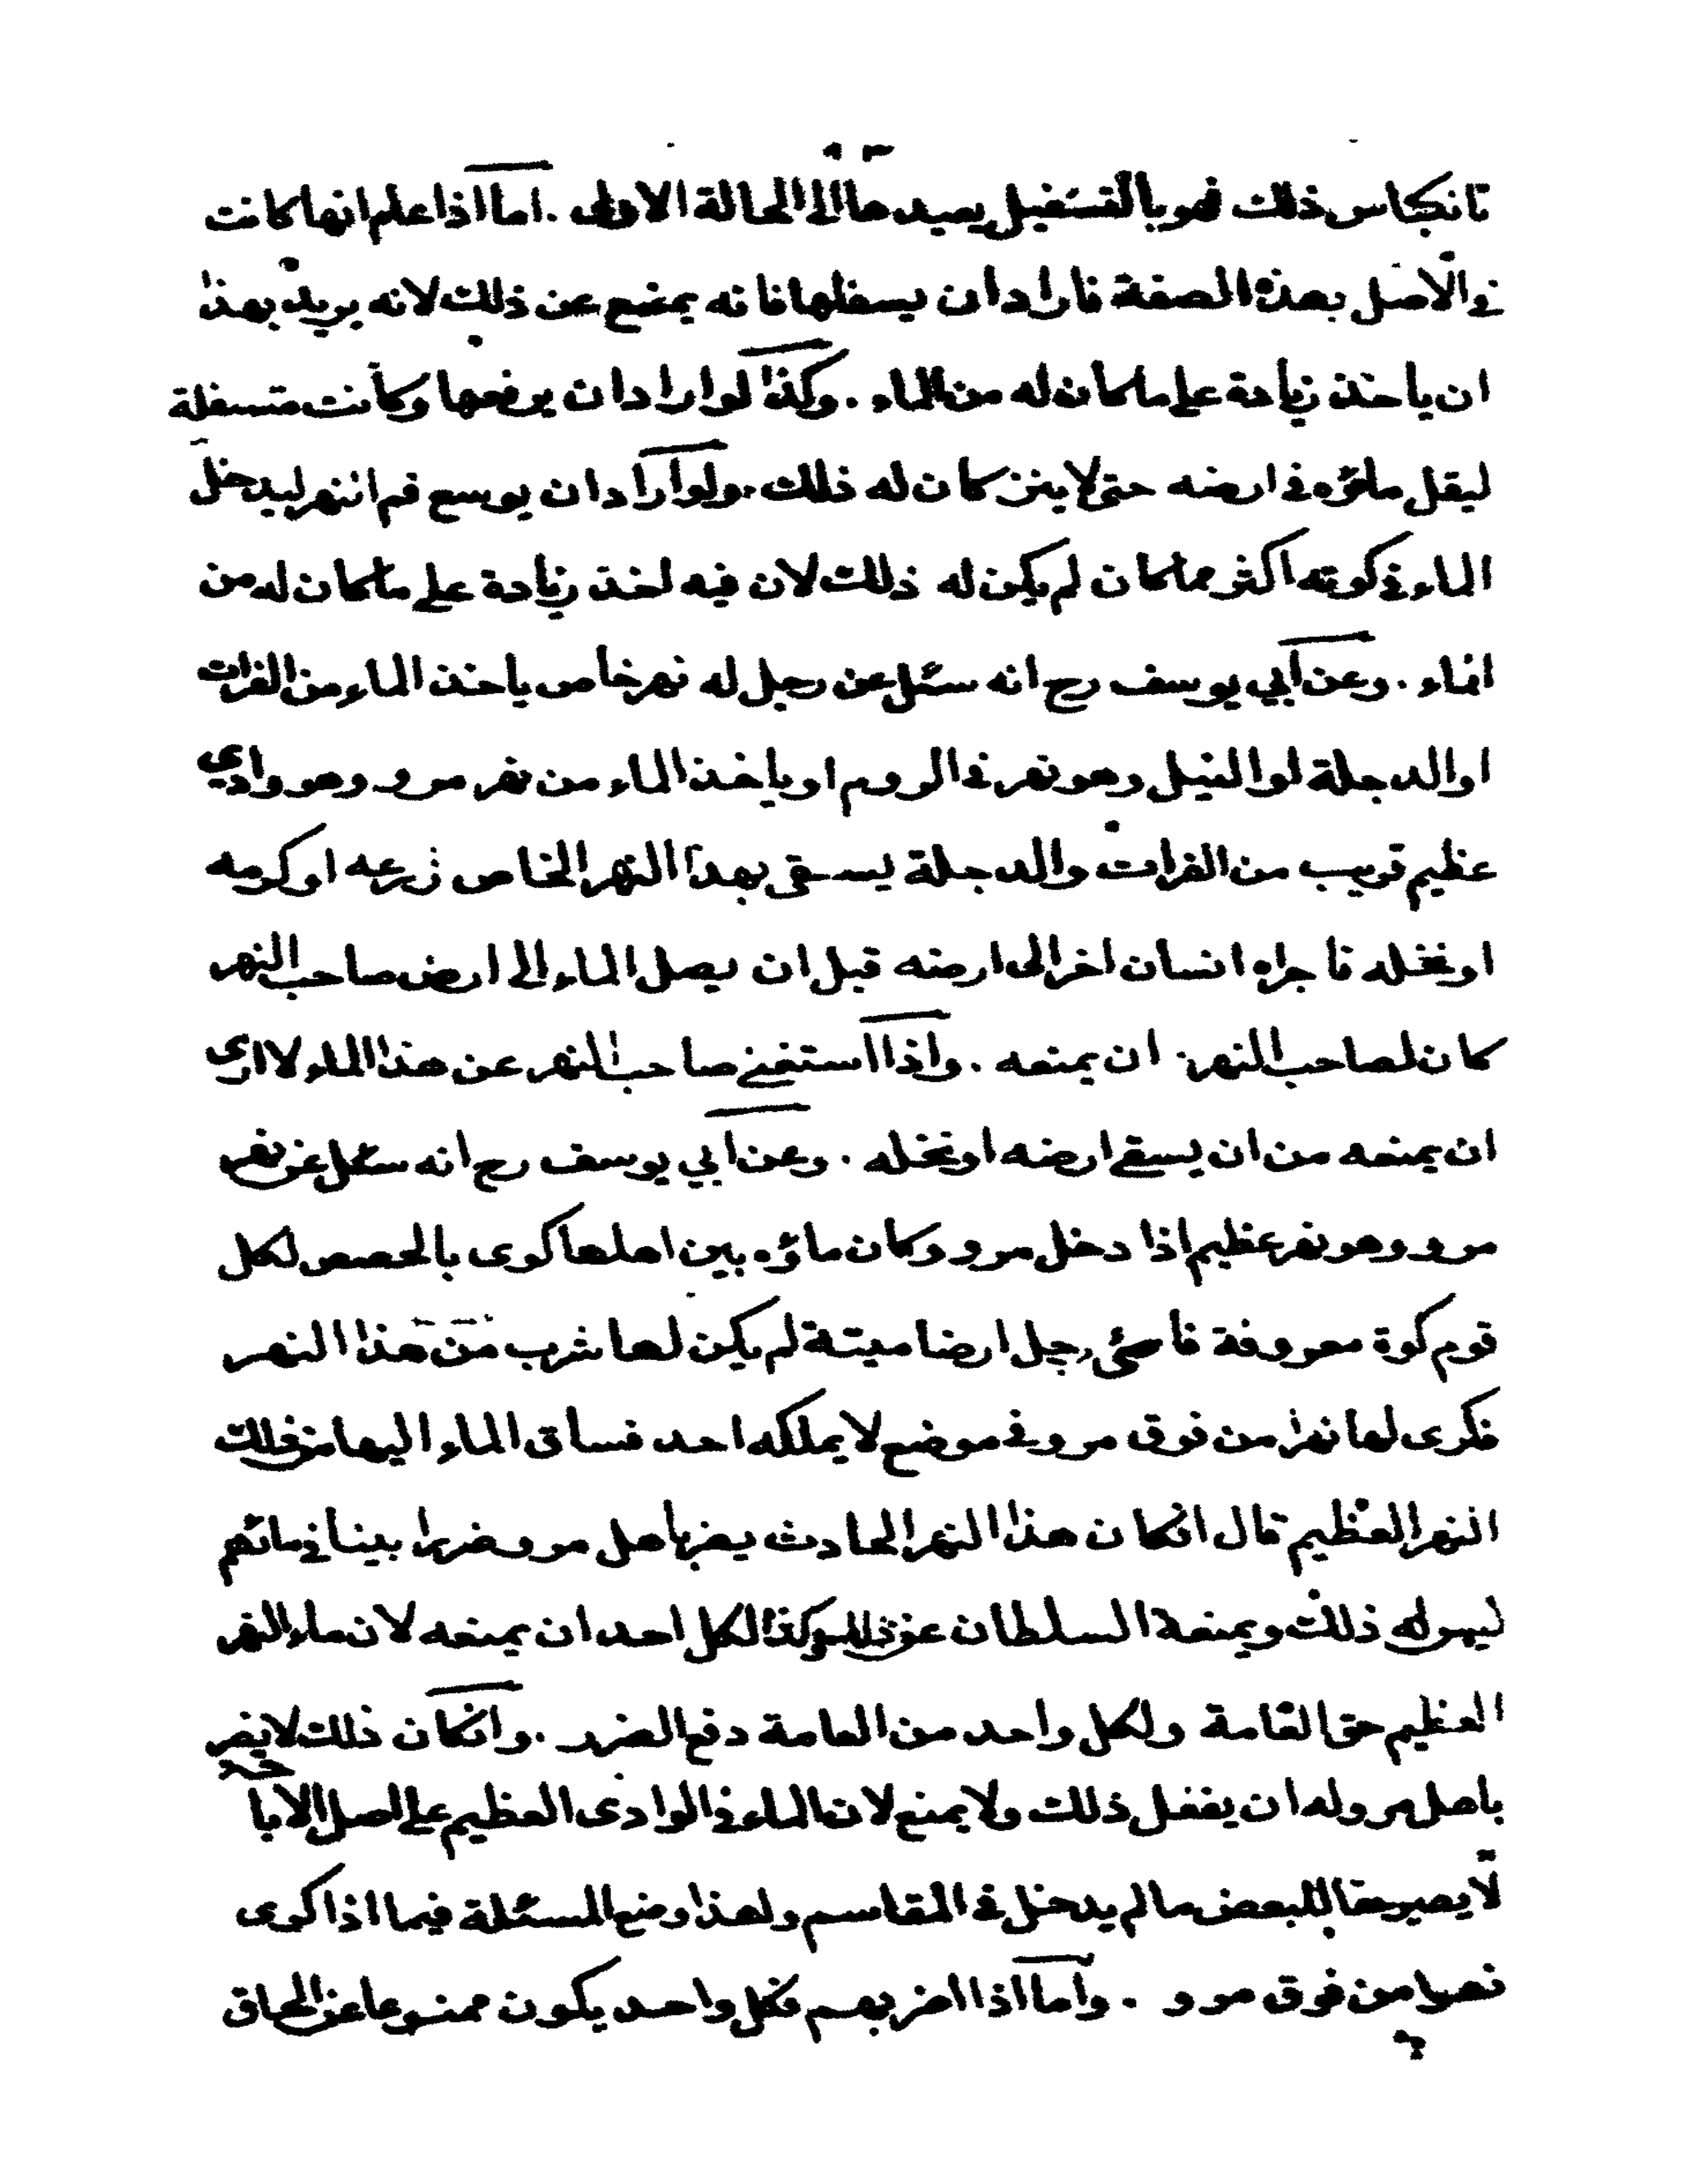 فانكباس ذلك فهو بالتسفيل يعيدها الى الحالة الاولى . اما اذا علم انها كانت
في الاصل بهذه الصفة فاراد ان يسفلها فانه يمنع عن ذلك لانه يريد بهذا
ان ياخذ زيادة على ما كان له من الماء . وكذا لو اراد ان يرفعها وكانت متسفلة
ليقل ماؤه في ارضه حتى لا ينز كان له ذلك . ولو اراد ان يوسع فم النهر ليدخل
الماء في كوته اكثر مما كان لم يكن له ذلك لان فيه اخذ زيادة على ما كان له من
الماء . وعن ابي يوسف رح انه سئل عن رجل له نهر خاص ياخذ الماء من الفرات
او الدجلة او النيل وهو نهر في الروم او ياخذ الماء من نهر مرو وهو وادي
عظيم قريب من الفرات والدجلة يسقى بهذا النهر الخاص زرعه او كرمه
او نخله فاجراه انسان اخر الى ارضه قبل ان يصل الماء الى ارض صاحب النهر
كان لصاحب النهر ان يمنعه . واذا استغنى صاحب النهر عن هذا الماء لا ارى
ان يمنعه من ان يسقى ارضه او نخله . وعن ابي يوسف رح انه سئل عن نهر
مرو وهو نهر عظيم اذا دخل مرو وكان ماؤه بين اهلها كوى بالحصص لكل
قوم كوة معروفة فاحيى رجل ارضا ميتة لم يكن لها شرب من هذا النهر
فكرى لها نهرا من فوق مرو في موضع لا يملكه احد فساق الماء اليها من ذلك
النهر العظيم قال انكان هذا النهر الحادث يضر باهل مرو ضررا بينا في مائهم
ليس له ذلك ويمنعه السلطان عن ذلك وكذا لكل احد ان يمنعه لان ماء النهر
العظيم حق العامة ولكل واحد من العامة دفع الضرر . وانكان ذلك لا يضر
باهل مرو له ان يفعل ذلك ولا يمنع لان الماء في الوادى العظيم على اصل الاباحة
لا يصير حقا للبعض ما لم يدخل في المقاسم ولهذا وضع المسئلة فيما اذا كرى
نهرا من فوق مرو . واما اذا اضر بهم فكل واحد يكون ممنوعا عن الحاق